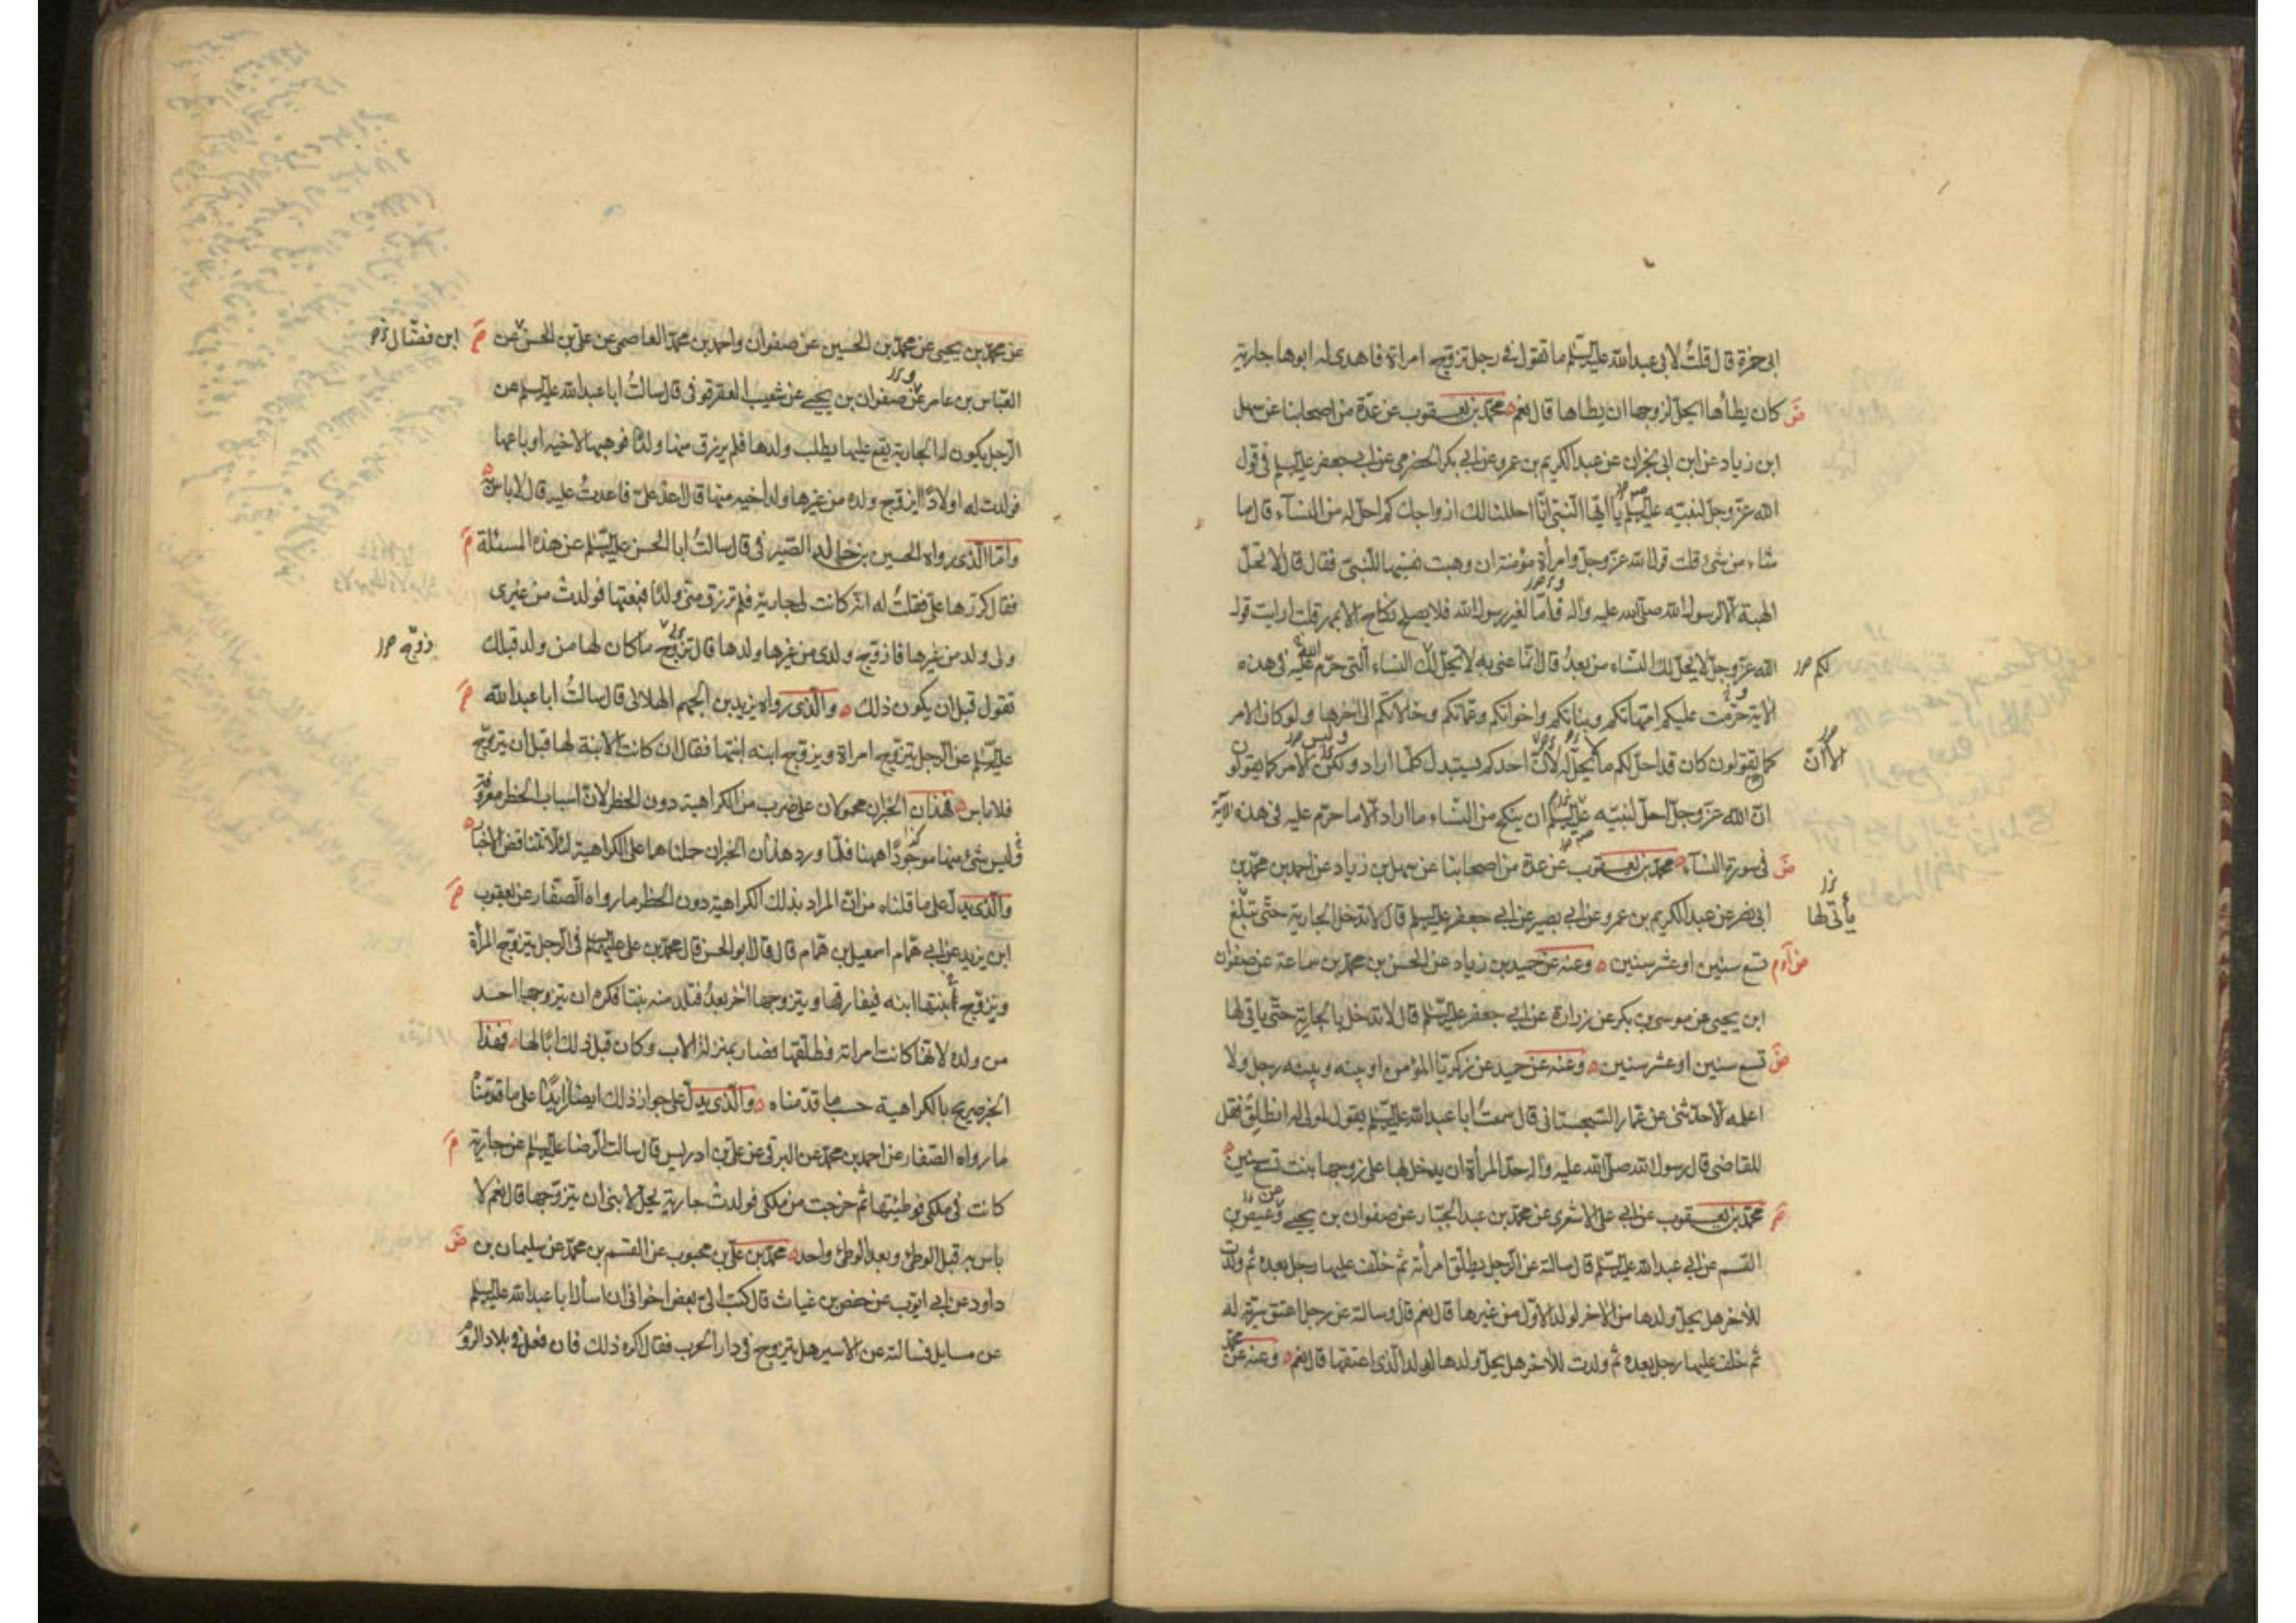 ابى حمزة قال قلتُ لابى عبدالله عليه السلم ما تقول فى رجل تزوج امراة فاهدى له ابوها جارية
كان يطأها ايحل لزوجها ان يطاها قال نعم محمد بن يعقوب عن عدة من اصحابنا عن سهل
ابن زياد عن ابن ابى نجران عن عبد الكريم بن عمرو عن ابى بكر الحضرمى عن ابى جعفر عليه السلم فى قول
الله عز وجل لنبيه عليه السلم يا ايها النبى انا احللنا لك ازواجك كم احل له من النسآء قال ما
شاء من شئ قلت قول الله عز وجل وامرأة مؤمنة ان وهبت نفسها للنبى فقال قال لا تحل
الهبة الا لرسول الله صلى الله عليه وآله فاما لغير رسول الله فلا يصلح نكاح الا بمهر قلت ارايت قول
الله عز وجل لا يحل لك النسآء من بعدُ قال انما عنى به لا يحل لك النساء التى حرم الله عليه فى هذه
لكم
الاية حرمت عليكم امهاتكم وبناتكم واخواتكم وعماتكم وخالاتكم الى اخرها ولو كان الامر
كما يقولون كان قد احل لكم ما لا يحل له لان احدكم يستبدل كلما اراد ولكن الامر كما يقولون
الا ان
ان الله عز وجل احل لنبيه عليه السلم ان ينكح من النساء ما اراد الا ما حرم عليه فى هذه الاية
فى سورة النسآء محمد بن يعقوب عن عدة من اصحابنا عن سهل بن زياد عن احمد بن محمد بن
ابى نصر عن عبد الكريم بن عمرو عن ابى بصير عن ابى جعفر عليه السلم قال لا تدخل الجارية حتى تبلغ
يأتى لها
تسع سنين او عشر سنين وعنه عن حميد بن زياد عن الحسن بن محمد بن سماعة عن صفوان
ابن يحيى عن موسى بن بكر عن زرارة عن ابى جعفر عليه السلم قال لا تدخل بالجارية حتى ياتى لها
تسع سنين او عشر سنين وعنه عن حميد عن زكريا المؤمن او بينه وبينه رجل ولا
اعلمه الا حدثنى عن عمار السجستانى قال سمعتُ ابا عبدالله عليه السلم يقول لمولى له انطلق فقل
للقاضى قال رسول الله صلى الله عليه وآله حد المرأة ان يدخل بها على زوجها بنت تسع سنين
محمد بن يعقوب عن ابى على الاشعرى عن محمد بن عبد الجبار عن صفوان بن يحيى وعيص بن
القسم عن ابى عبدالله عليه السلم قال سالته عن الرجل يطلق امرأته ثم خلف عليها رجل بعده ثم ولدت
للاخر هل يحل ولدها من الاخر لولد الاول من غيرها قال نعم قال وسالته عن رجل اعتق سرية له
ثم خلف عليها رجل بعده ثم ولدت للاخر هل يحل ولدها لولد الذى اعتقها قال نعم وعنه عن محمد
عن محمد بن يحيى عن محمد بن الحسين عن صفوان واحمد بن محمد العاصمى عن على بن الحسن عن
ابن فضال
العباس بن عامر عن صفوان بن يحيى عن شعيب العقرقوفى قال سالتُ ابا عبدالله عليه السلم عن
الرجل يكون له الجارية يقع عليها يطلب ولدها فلم يرزق منها ولدًا فوهبها لاخيه او باعها
فولدت له اولادًا ايزوج ولده من غيرها ولد اخيه منها قال اعد على فاعدتُ عليه قال لا باس به
واما الذى رواه الحسين بن خالد الصيرفى قال سالتُ ابا الحسن عليه السلم عن هذه المسئلة
فقال كررها على فقلتُ له انه كانت لى جارية فلم ترزق منى ولدًا فبعتها فولدت من غيرى
ولى ولد من غيرها فازوج ولدى من غيرها ولدها قال تزوج ما كان لها من ولد قبلك
زوجه
تقول قبل ان يكون ذلك والذى رواه يزيد بن الجهم الهلالى قال سالتُ ابا عبدالله
عليه السلم عن الرجل يتزوج امراة ويزوج ابنه ابنتها فقال ان كانت الابنة لها قبل ان يتزوج
فلا باس فهذان الخبران محمولان على ضرب من الكراهية دون الحظر لان اسباب الحظر معروفة
وليس شئ منها موجودًا ههنا فلما ورد هذان الخبران حملناهما على الكراهية لئلا تتناقض الاخبار
والذى يدل على ما قلناه من ان المراد بذلك الكراهية دون الحظر ما رواه الصفار عن يعقوب
ابن يزيد عن ابى همام اسمعيل بن همام قال قال ابو الحسن قال محمد بن على عليهما السلم فى الرجل يتزوج المرأة
ويزوج ابنتها ابنه فيفارقها ويتزوجها اخر بعدُ فتلد منه بنتًا فكره ان يتزوجها احد
من ولده لانها كانت امراته فطلقها فصار بمنزلة الاب وكان قبل ذلك ابًا لها فهذا
الخبر صريح بالكراهية حسب ما قدمناه والذى يدل على جواز ذلك ايضا زايدًا على ما قدمناه
ما رواه الصفار عن احمد بن محمد عن البرقى عن على بن ادريس قال سالت الرضا عليه السلم عن جارية
كانت فى ملكى فوطئتها ثم خرجت من ملكى فولدت جارية يحل لابنى ان يتزوجها قال نعم لا
باس به قبل الوطئ وبعد الوطئ واحد محمد بن على بن محبوب عن القسم بن محمد عن سليمان بن
داود عن ابى ايوب عن حفص بن غياث قال كتب الى بعض اخوانى ان اسأل ابا عبدالله عليه السلم
عن مسايل فسالته عن الاسير هل يتزوج فى دار الحرب فقال اكره ذلك فان فعل فى بلاد الروم